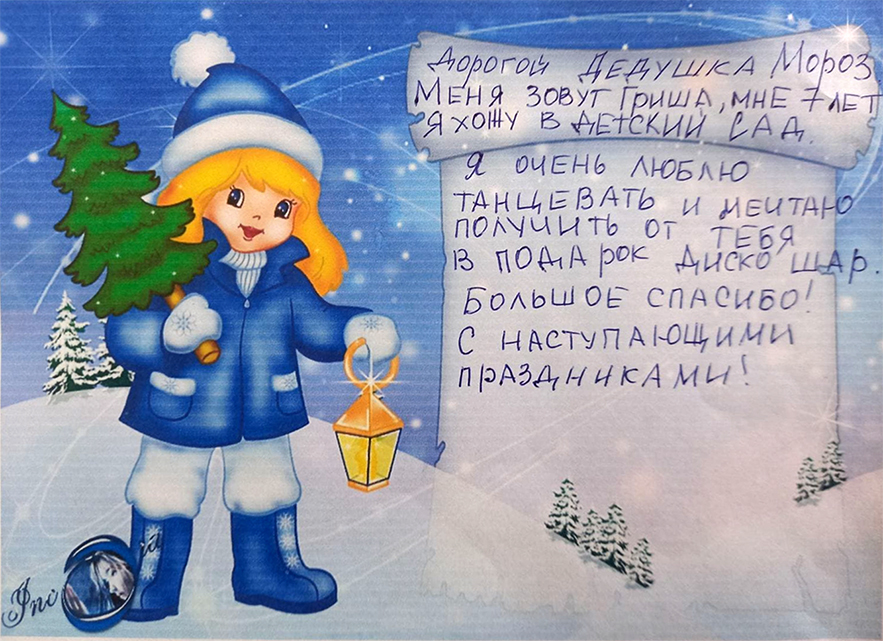 Дорогой Дедушка Мороз
Меня зовут Гриша, мне 7 лет
я хожу в детский сад.
Я очень люблю
танцевать и мечтаю
получить от тебя
в подарок диско шар.
Большое спасибо!
С наступающими
праздниками!